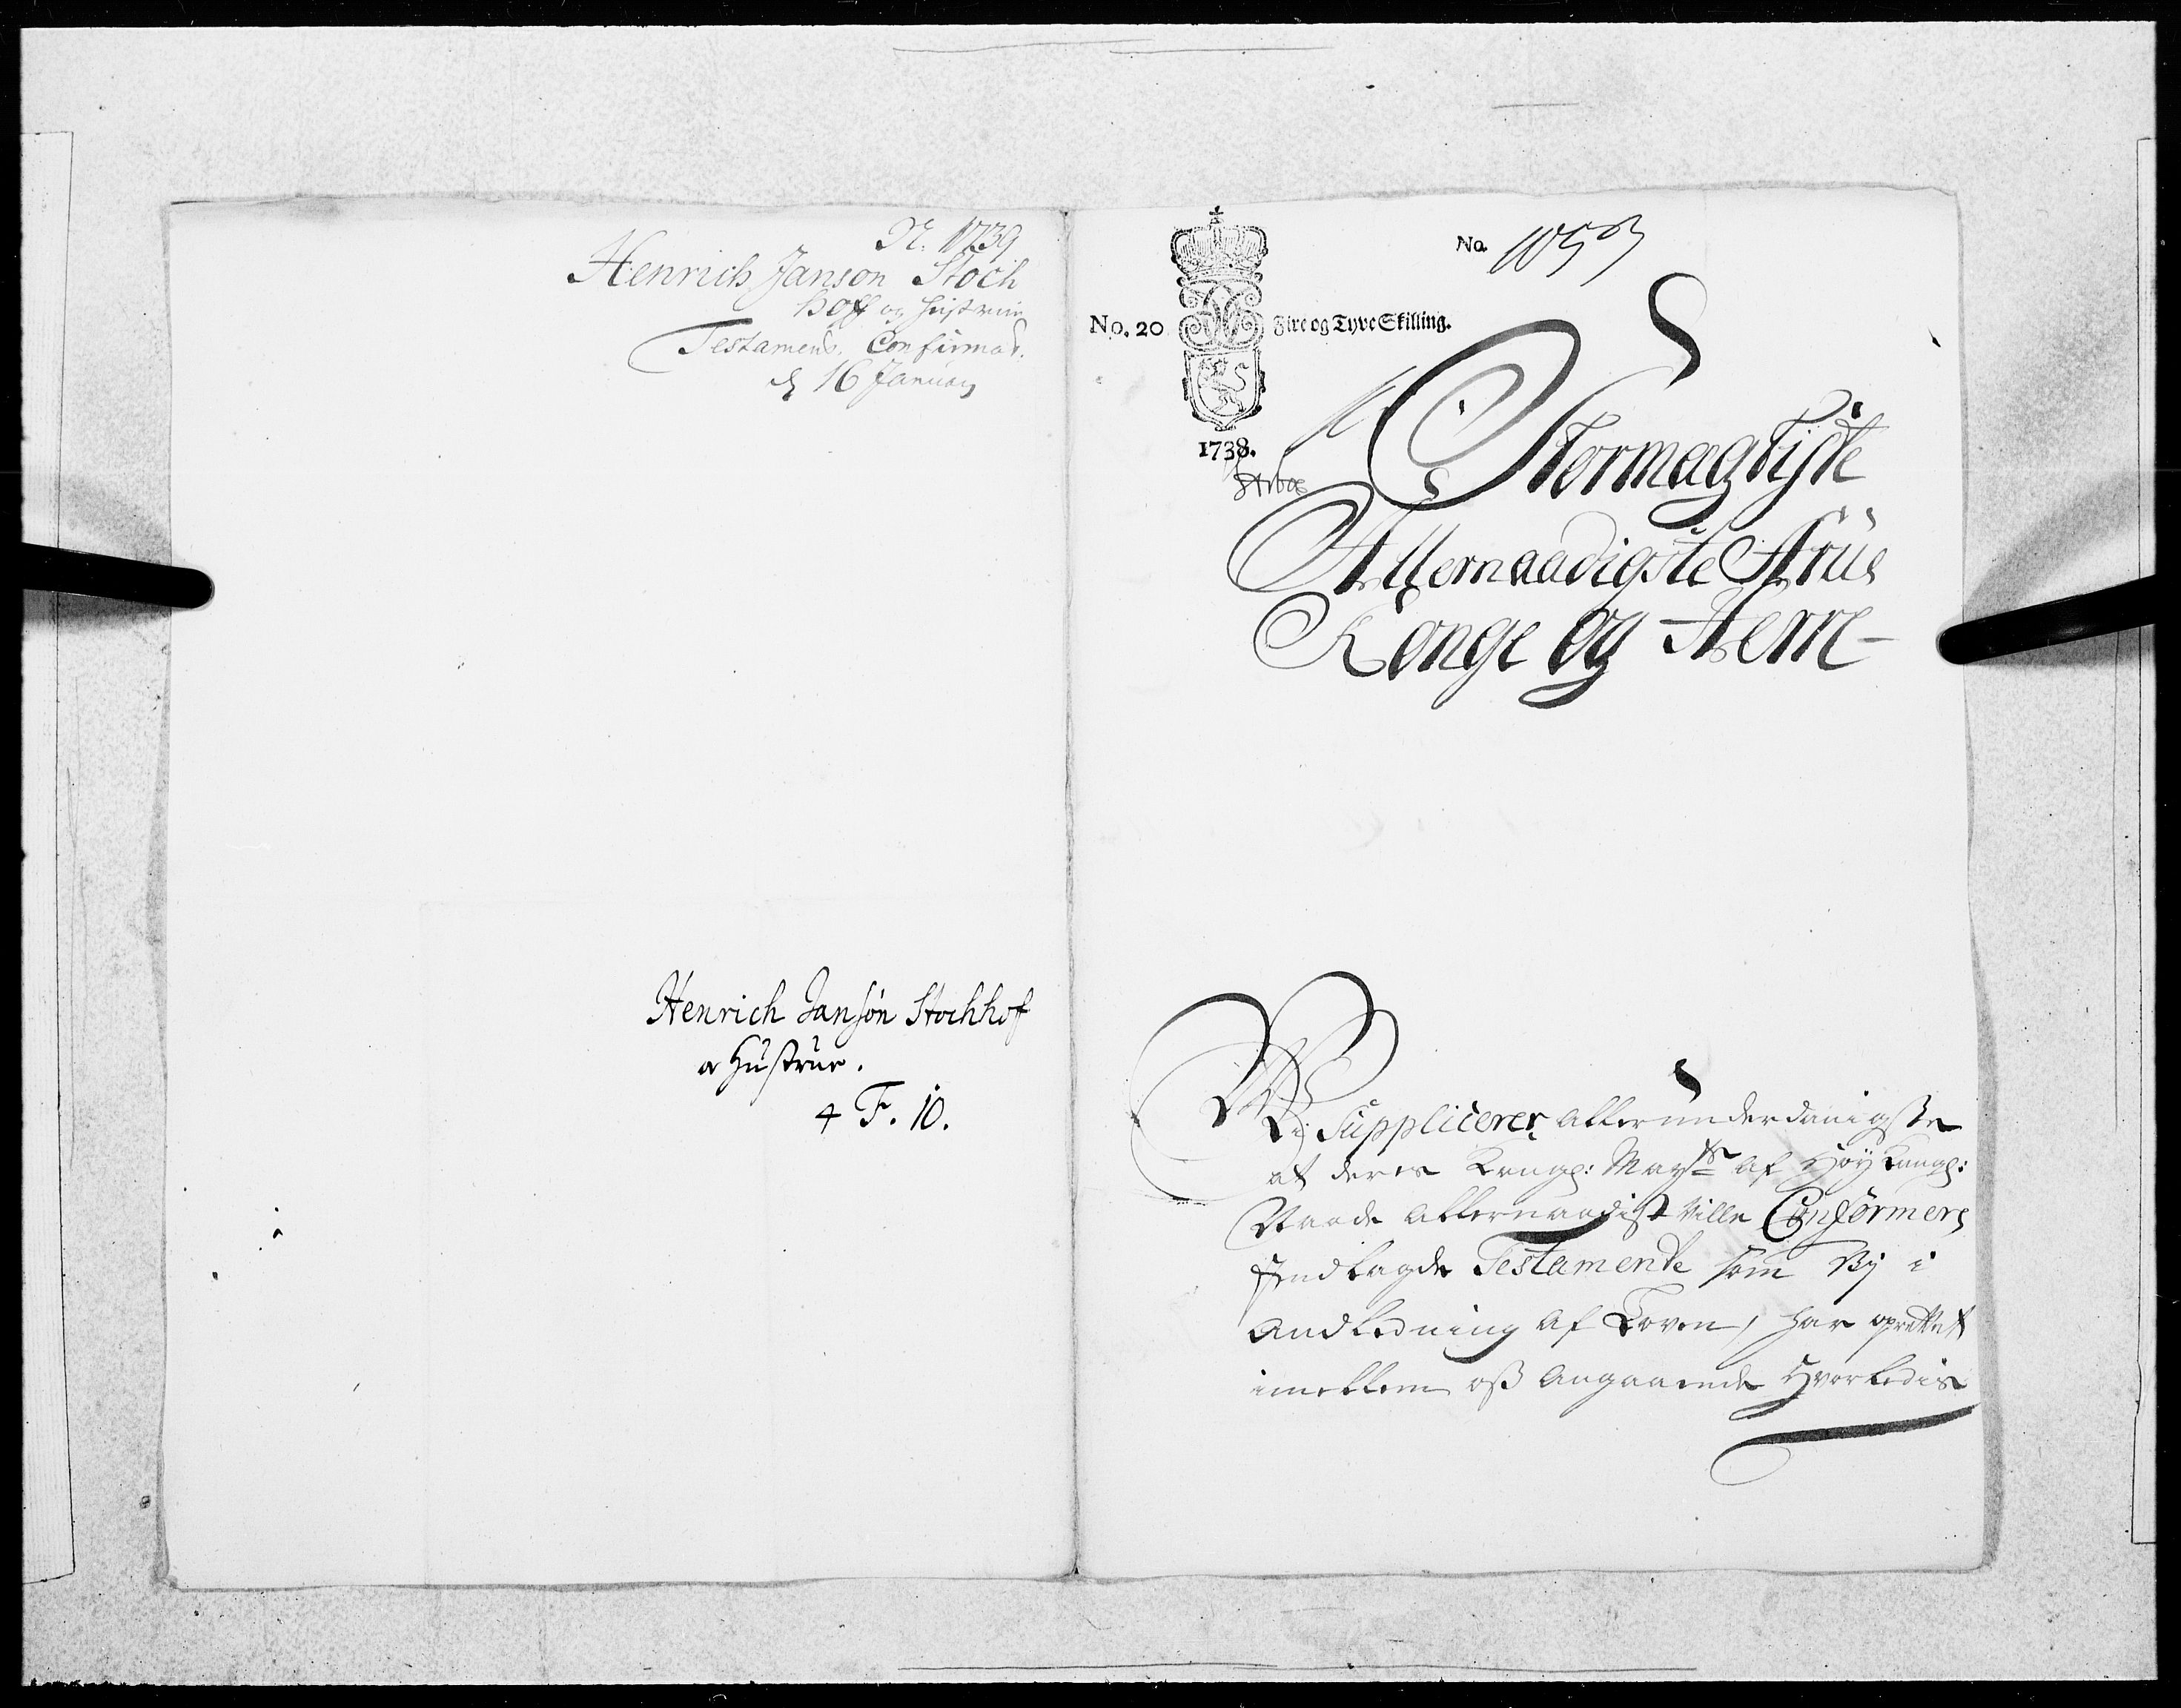 N. 1739
Henrich Janson Stoch
hoff og Hustrue
Testament. Confirmat.
d 16 Januarj
Henrich Jansøn Stochhof
a Hustrue.
4 F. 10.
No.
No. 20
Fire og Tyve Skilling.
1738.
Stormægtigste
Allernaadigste Arve
Konge og Herre
Vi Supplicerer allerunderdanigste
at deres Kongl: Maysts af Høy Kongl:
Naade allernaadigst ville Confirmere
Indlagde Testamente som Vj i
Andledning af Loven, har oprettet
imellem oß Angaaende Hvorledis